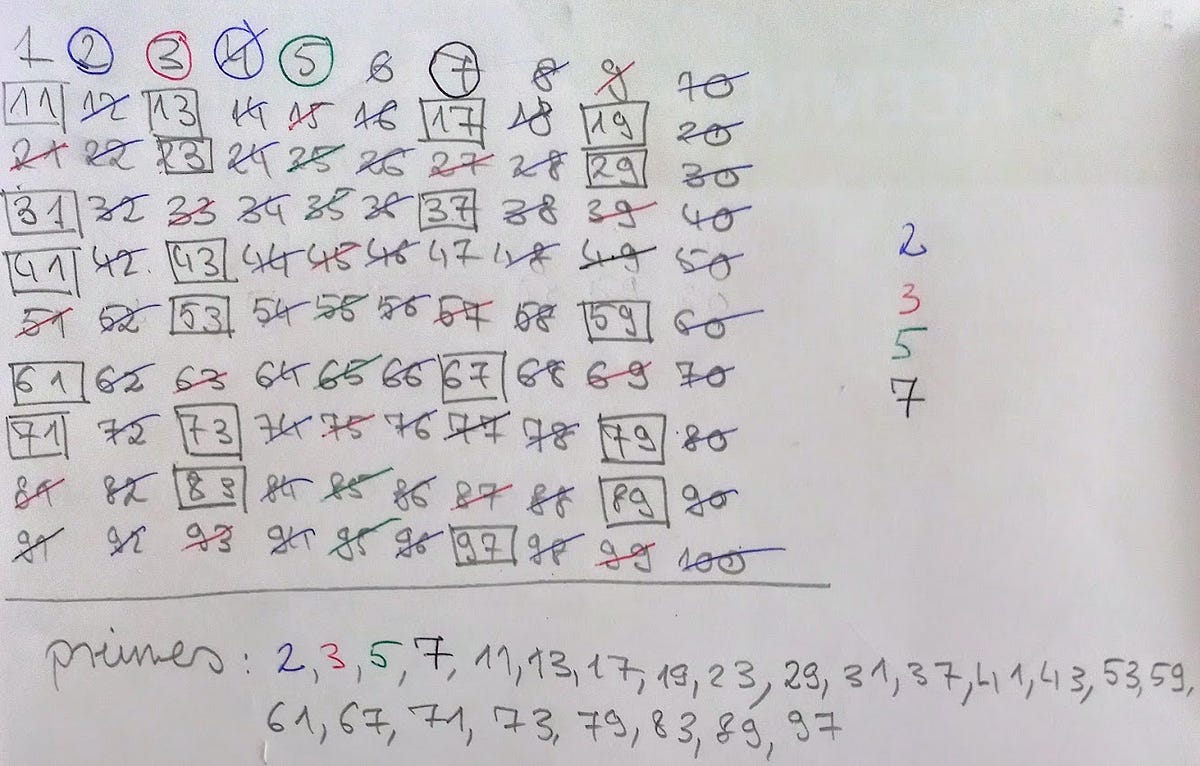 1 2 3 4 5 6 7 8 9 10
11 12 13 14 15 16 17 18 19 20
21 22 23 24 25 26 27 28 29 30
31 32 33 34 35 36 37 38 39 40
41 42 43 44 45 46 47 48 49 50
51 52 53 54 55 56 57 58 59 60
61 62 63 64 65 66 67 68 69 70
71 72 73 74 75 76 77 78 79 80
81 82 83 84 85 86 87 88 89 90
91 92 93 94 95 96 97 98 99 100
2
3
5
7
primes: 2, 3, 5, 7, 11, 13, 17, 19, 23, 29, 31, 37, 41, 43, 53, 59,
61, 67, 71, 73, 79, 83, 89, 97